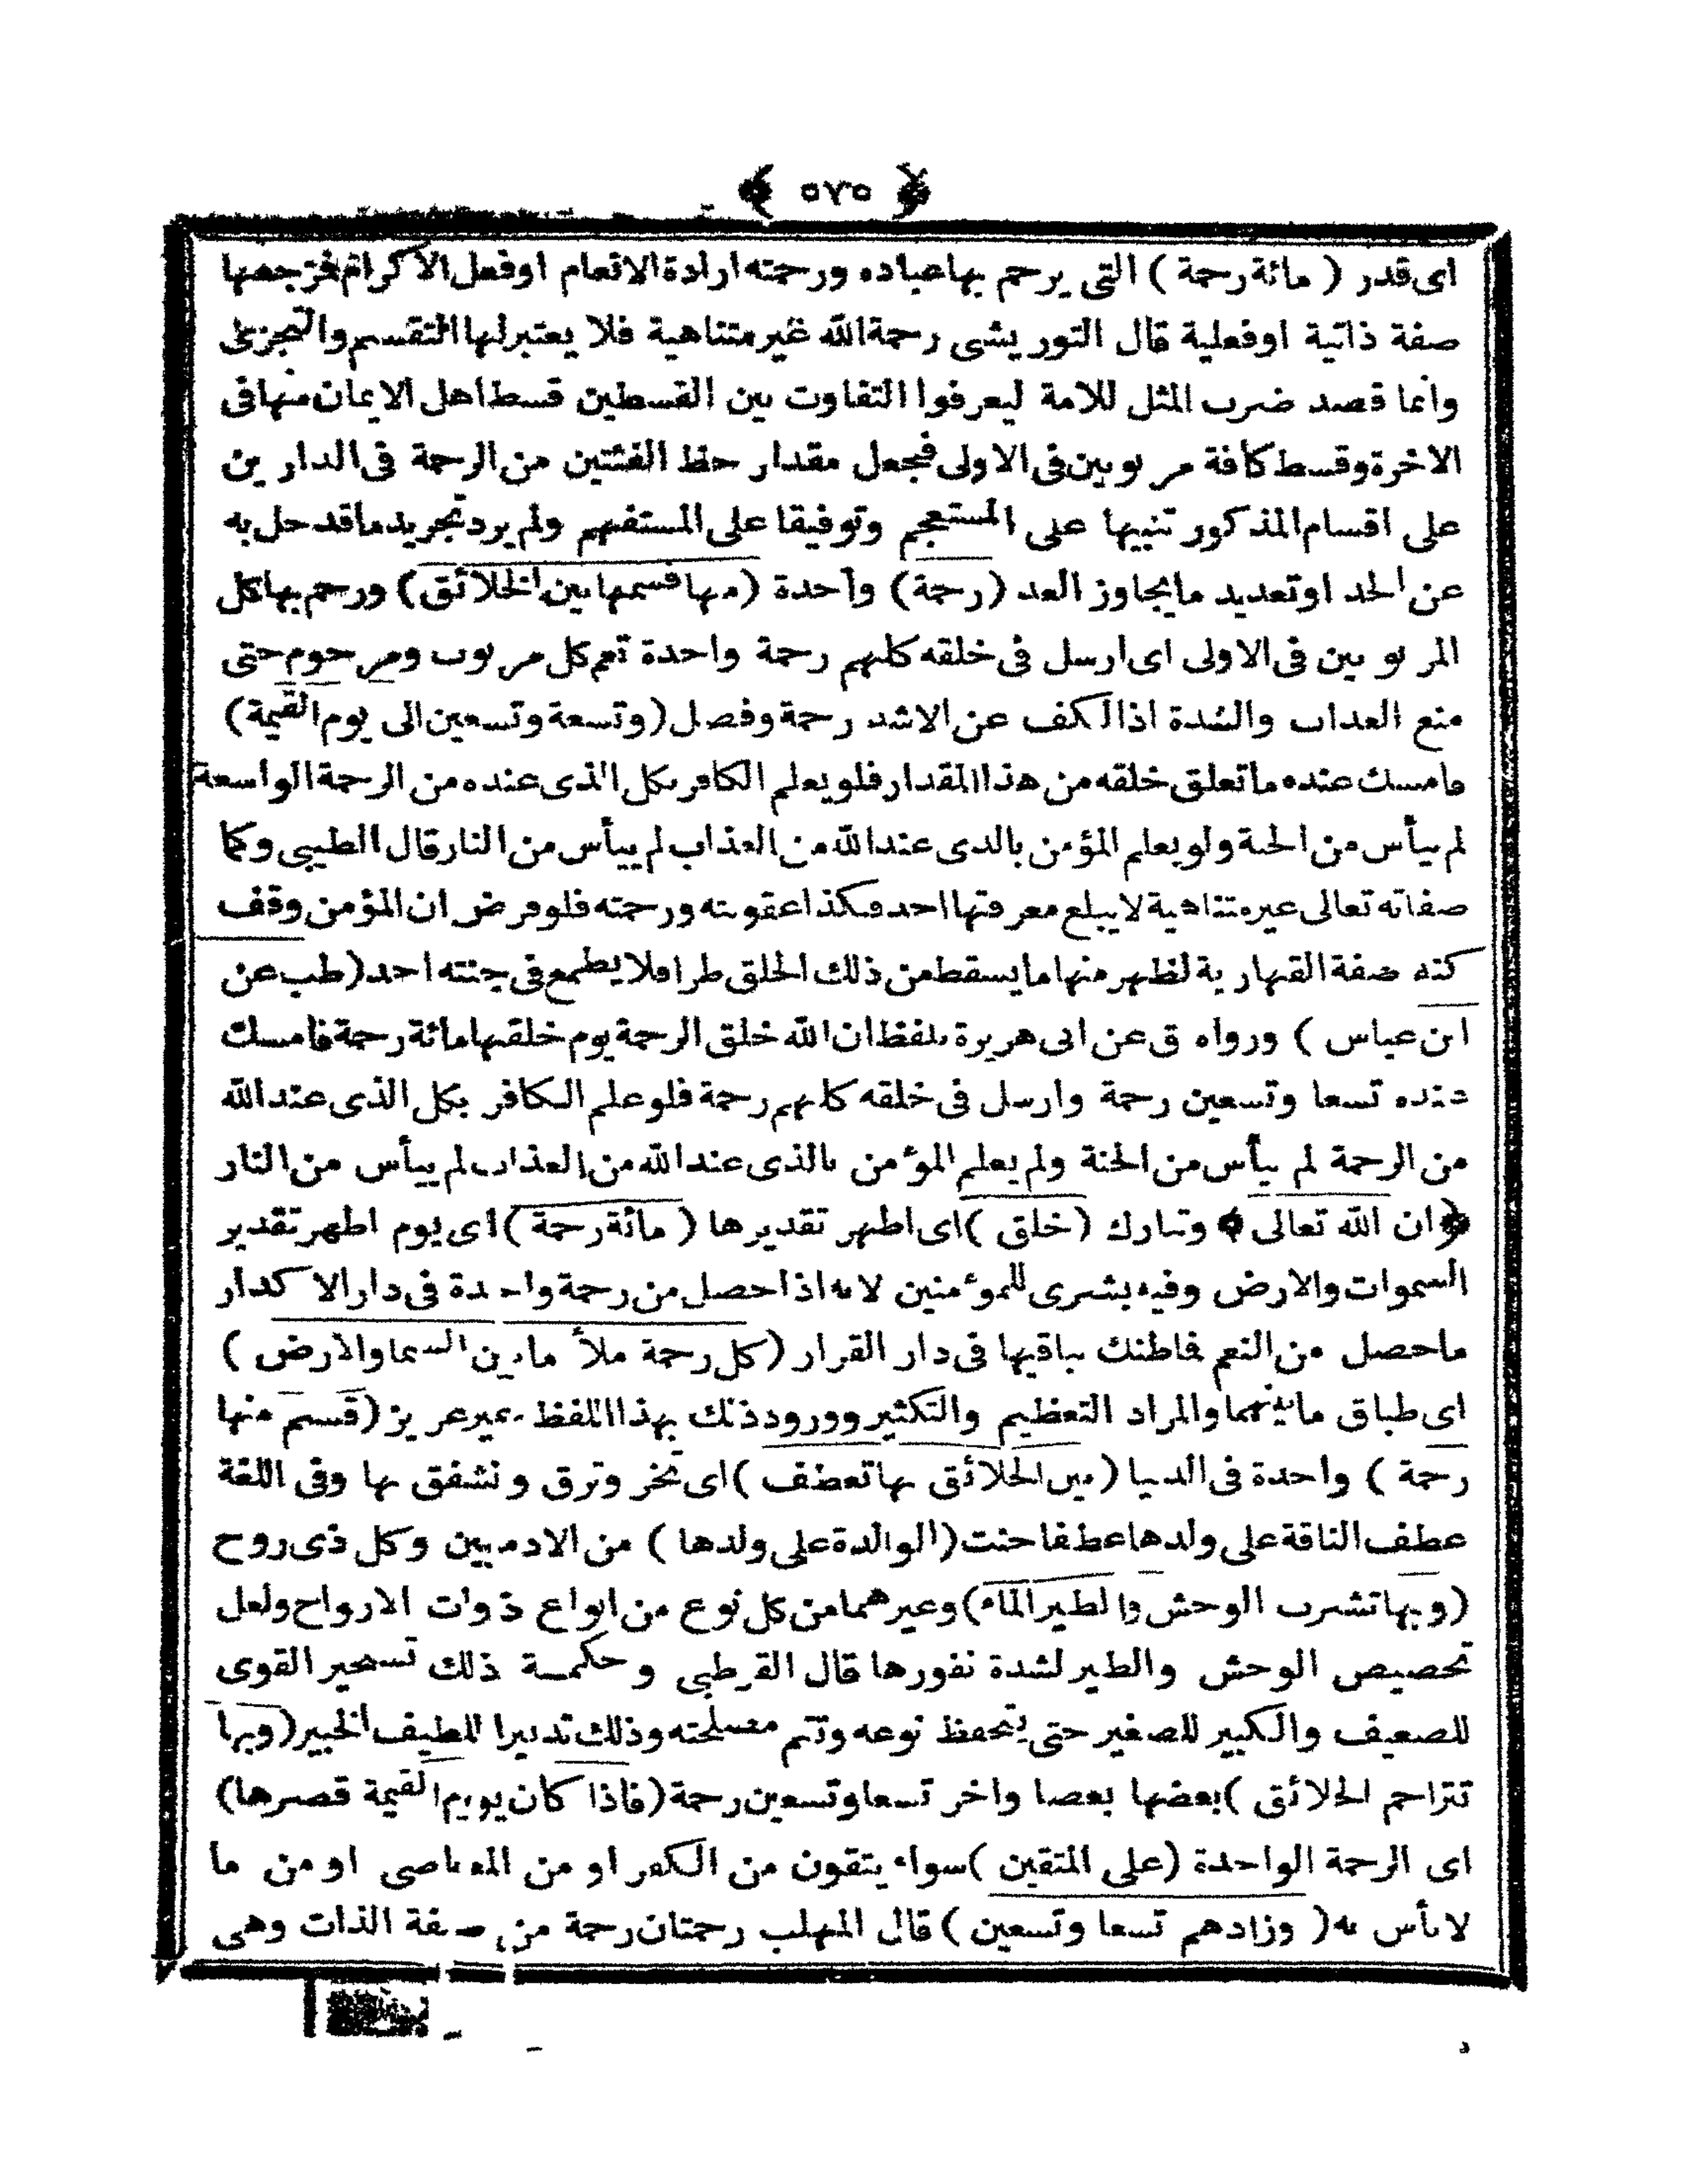 ﴿ ٥٧٥ ﴾
اى قدر ( مائة رحمة ) التى يرحم بها عباده ورحمته ارادة الانعام اوفعل الاكرام فمرجعها
صفة ذاتية اوفعلية قال التوريشى رحمة الله غير متناهية فلا يعتبر لها التقسم والتجزى
وانما قصد ضرب المثل للامة ليعرفوا التفاوت بين القسطين قسط اهل الايمان منها فى
الاخرة وقسط كافة مربوبين فى الاولى فجعل مقدار حظ الفئتين من الرحمة فى الدارين
على اقسام المذكور تنبيها على المستعجم وتوفيقا على المستفهم ولم يرد تجريد ما قد حل به
عن الحد اوتعديد ما يجاوز العد ( رحمة ) واحدة ( منها قسمها بين الخلائق ) ورحم بها كل
المربوبين فى الاولى اى ارسل فى خلقه كلهم رحمة واحدة تعم كل مربوب ومرحوم حتى
منع العذاب والشدة اذ الكف عن الاشد رحمة وفصل ( وتسعة وتسعين الى يوم القيمة )
فامسك عنده ما تعلق خلقه من هذا المقدار فلو يعلم الكافر بكل الذى عنده من الرحمة الواسعة
لم ييأس من الجنة ولو يعلم المؤمن بالذى عند الله من العذاب لم ييأس من النار قال الطيبى وكما
صفاته تعالى غير متناهية لا يبلغ معرفتها احد فكذا عقوبته ورحمته فلو فرض ان المؤمن وقف
كنه صفة القهارية لظهر منها ما يسقط من ذلك الخلق طرا فلا يطمع فى جنته احد ( طب عن
ابن عباس ) ورواه ق عن ابى هريرة بلفظ ان الله خلق الرحمة يوم خلقها مائة رحمة فامسك
عنده تسعا وتسعين رحمة وارسل فى خلقه كلهم رحمة فلو علم الكافر بكل الذى عند الله
من الرحمة لم ييأس من الجنة ولم يعلم المؤمن بالذى عند الله من العذاب لم ييأس من النار
﴿ ان الله تعالى ﴾ وتبارك ( خلق ) اى اظهر تقديرها ( مائة رحمة ) اى يوم اظهر تقدير
السموات والارض وفيه بشرى للمؤمنين لانه اذا حصل من رحمة واحدة فى دار الاكدار
ما حصل من النعم فاظنك بباقيها فى دار القرار ( كل رحمة ملأ ما بين السما والارض )
اى طباق ما بينهما والمراد التعظيم والتكثير وورود ذلك بهذا اللفظ غير عزيز ( قسم منها
رحمة ) واحدة فى الدنيا ( بين الخلائق بها تعطف ) اى تخر وترق وتشفق بها وفى اللغة
عطف الناقة على ولدها عطفا حنت ( الوالدة على ولدها ) من الادميين وكل ذى روح
( وبها تشرب الوحش والطير الماء ) وغيرهما من كل نوع من انواع ذوات الارواح ولعل
تخصيص الوحش والطير لشدة نفورها قال القرطبى وحكمة ذلك تسخير القوى
للضعيف والكبير للصغير حتى يتحفظ نوعه وتتم مصلحته وذلك تدبيرا للطيف الخبير ( وبها
تتراحم الخلائق ) بعضها بعضا واخر تسعا وتسعين رحمة ( فاذا كان يوم القيمة قصرها )
اى الرحمة الواحدة ( على المتقين ) سواء يتقون من الكفر او من المعاصى او من ما
لا بأس به ( وزادهم تسعا وتسعين ) قال المهلب رحمتان رحمة من صفة الذات وهى